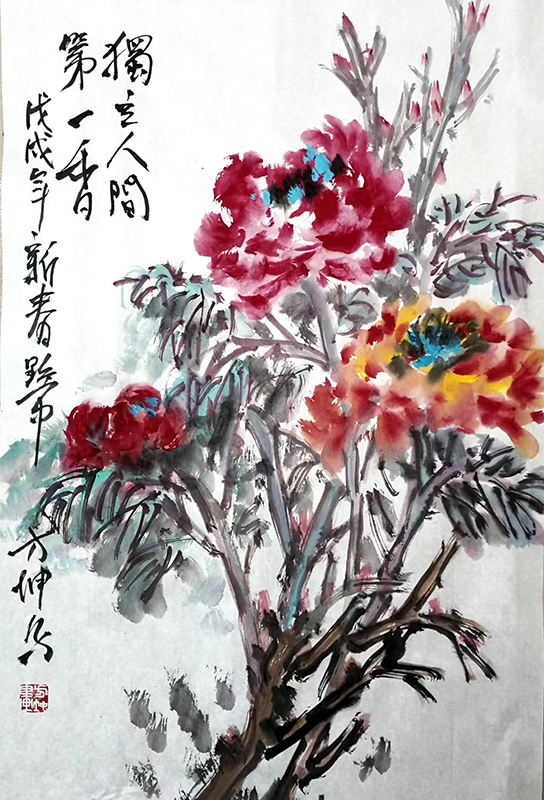 獨立人間
第一香
戊戌年新春黔中方坤写